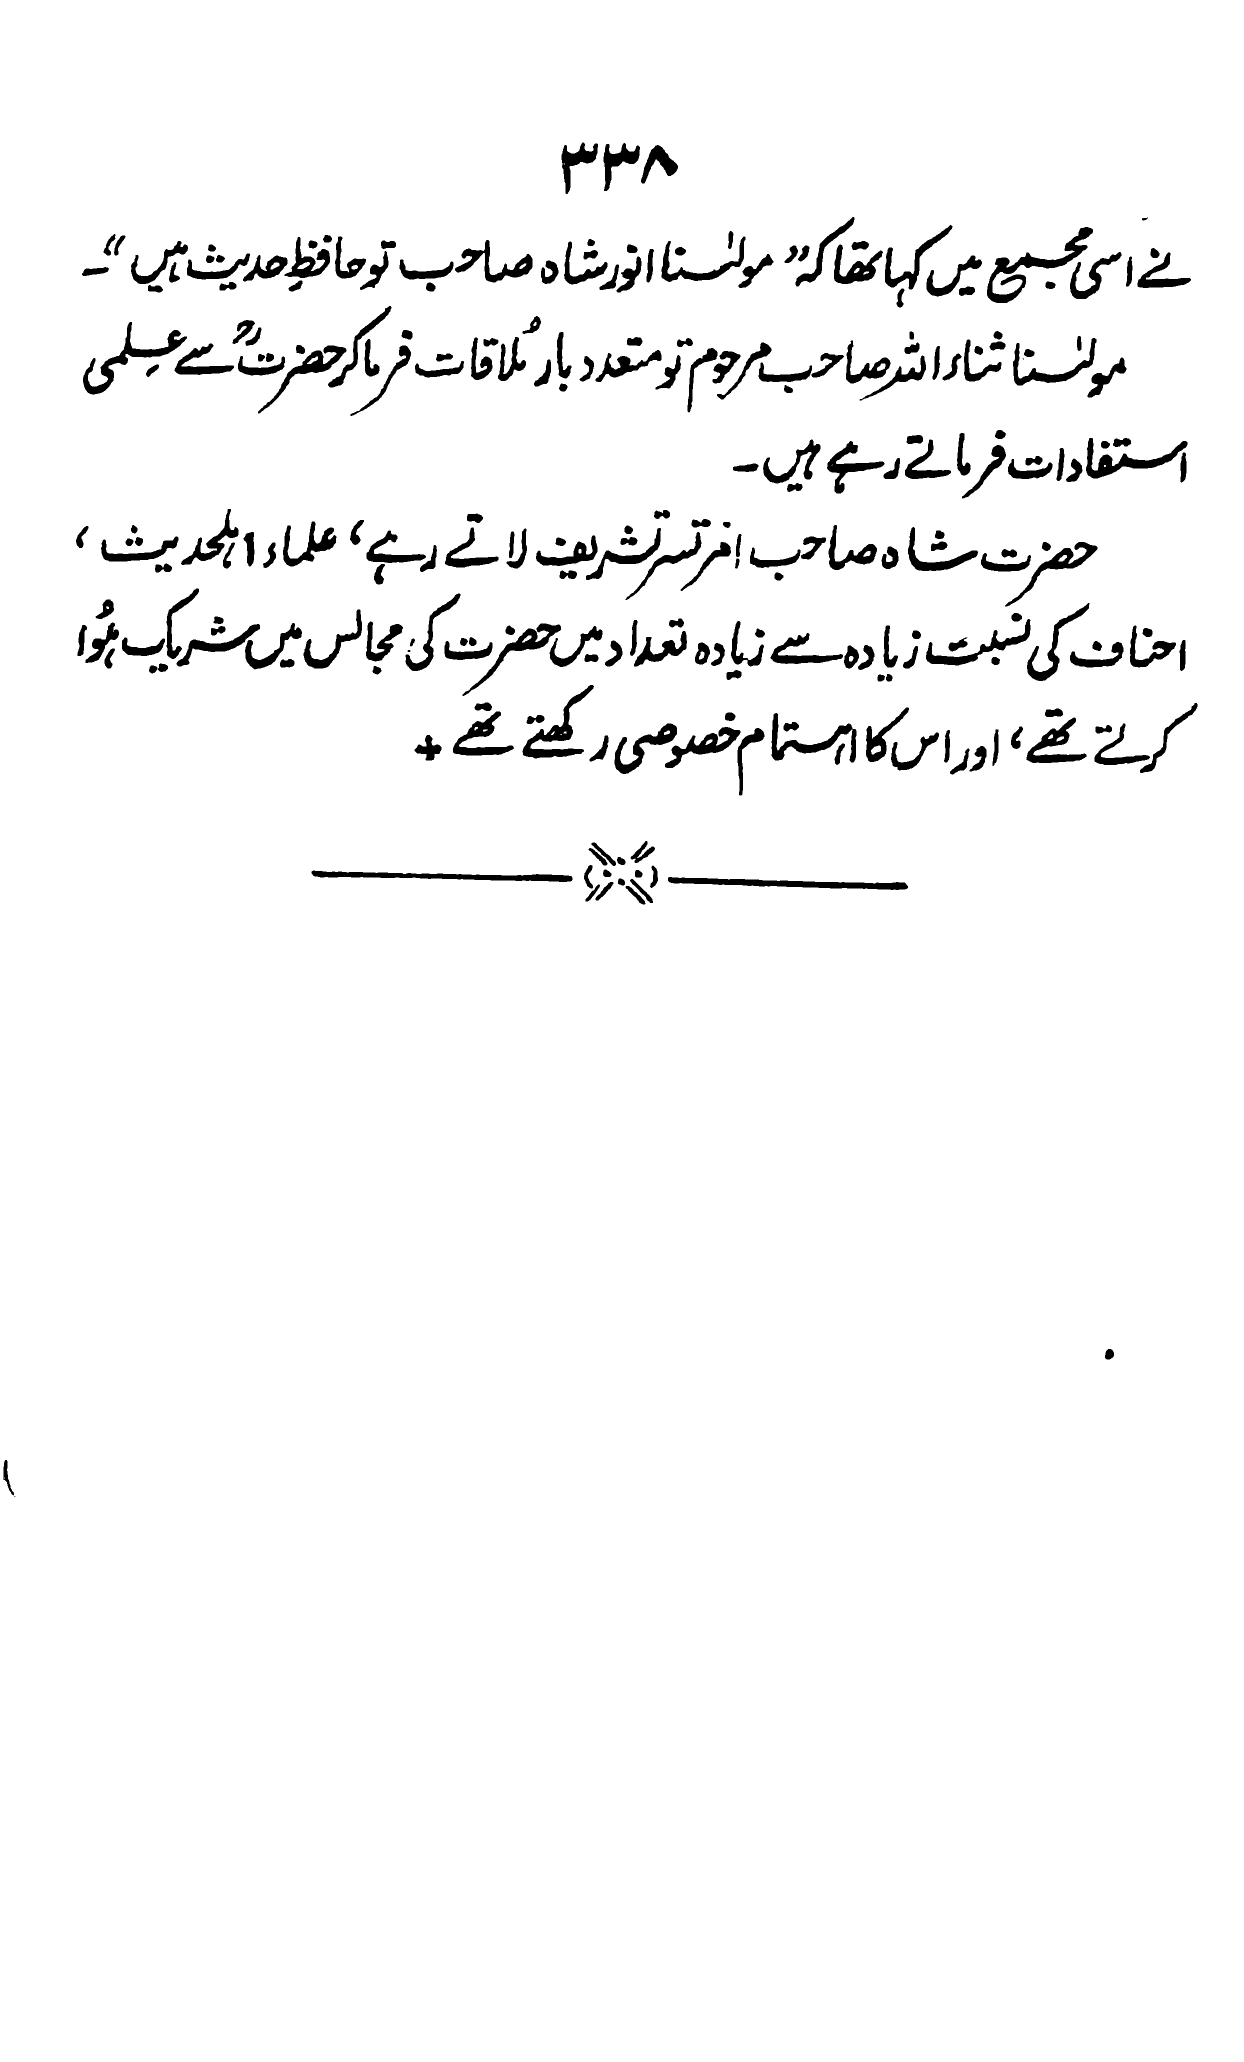 ۳۳۸
نے اسی مجمیع میں کہا تھا کہ ”مولٰسنا انور شاہ صاحب تو حافظِ حدیث ہیں“۔
مولٰسنا ثناء اللہ صاحب مرحوم تو متعدد بار مُلاقات فرما کر حضرتؒ سے عِلمی
استفادات فرماتے رہے ہیں۔
حضرت شاہ صاحب امرتسر تشریف لاتے رہے، علماء اہلحدیث،
احناف کی نسبت زیادہ سے زیادہ تعداد میں حضرت کی مجالس میں شریک ہُوا
کرتے تھے، اور اس کا اہتمام خصوصی رکھتے تھے +